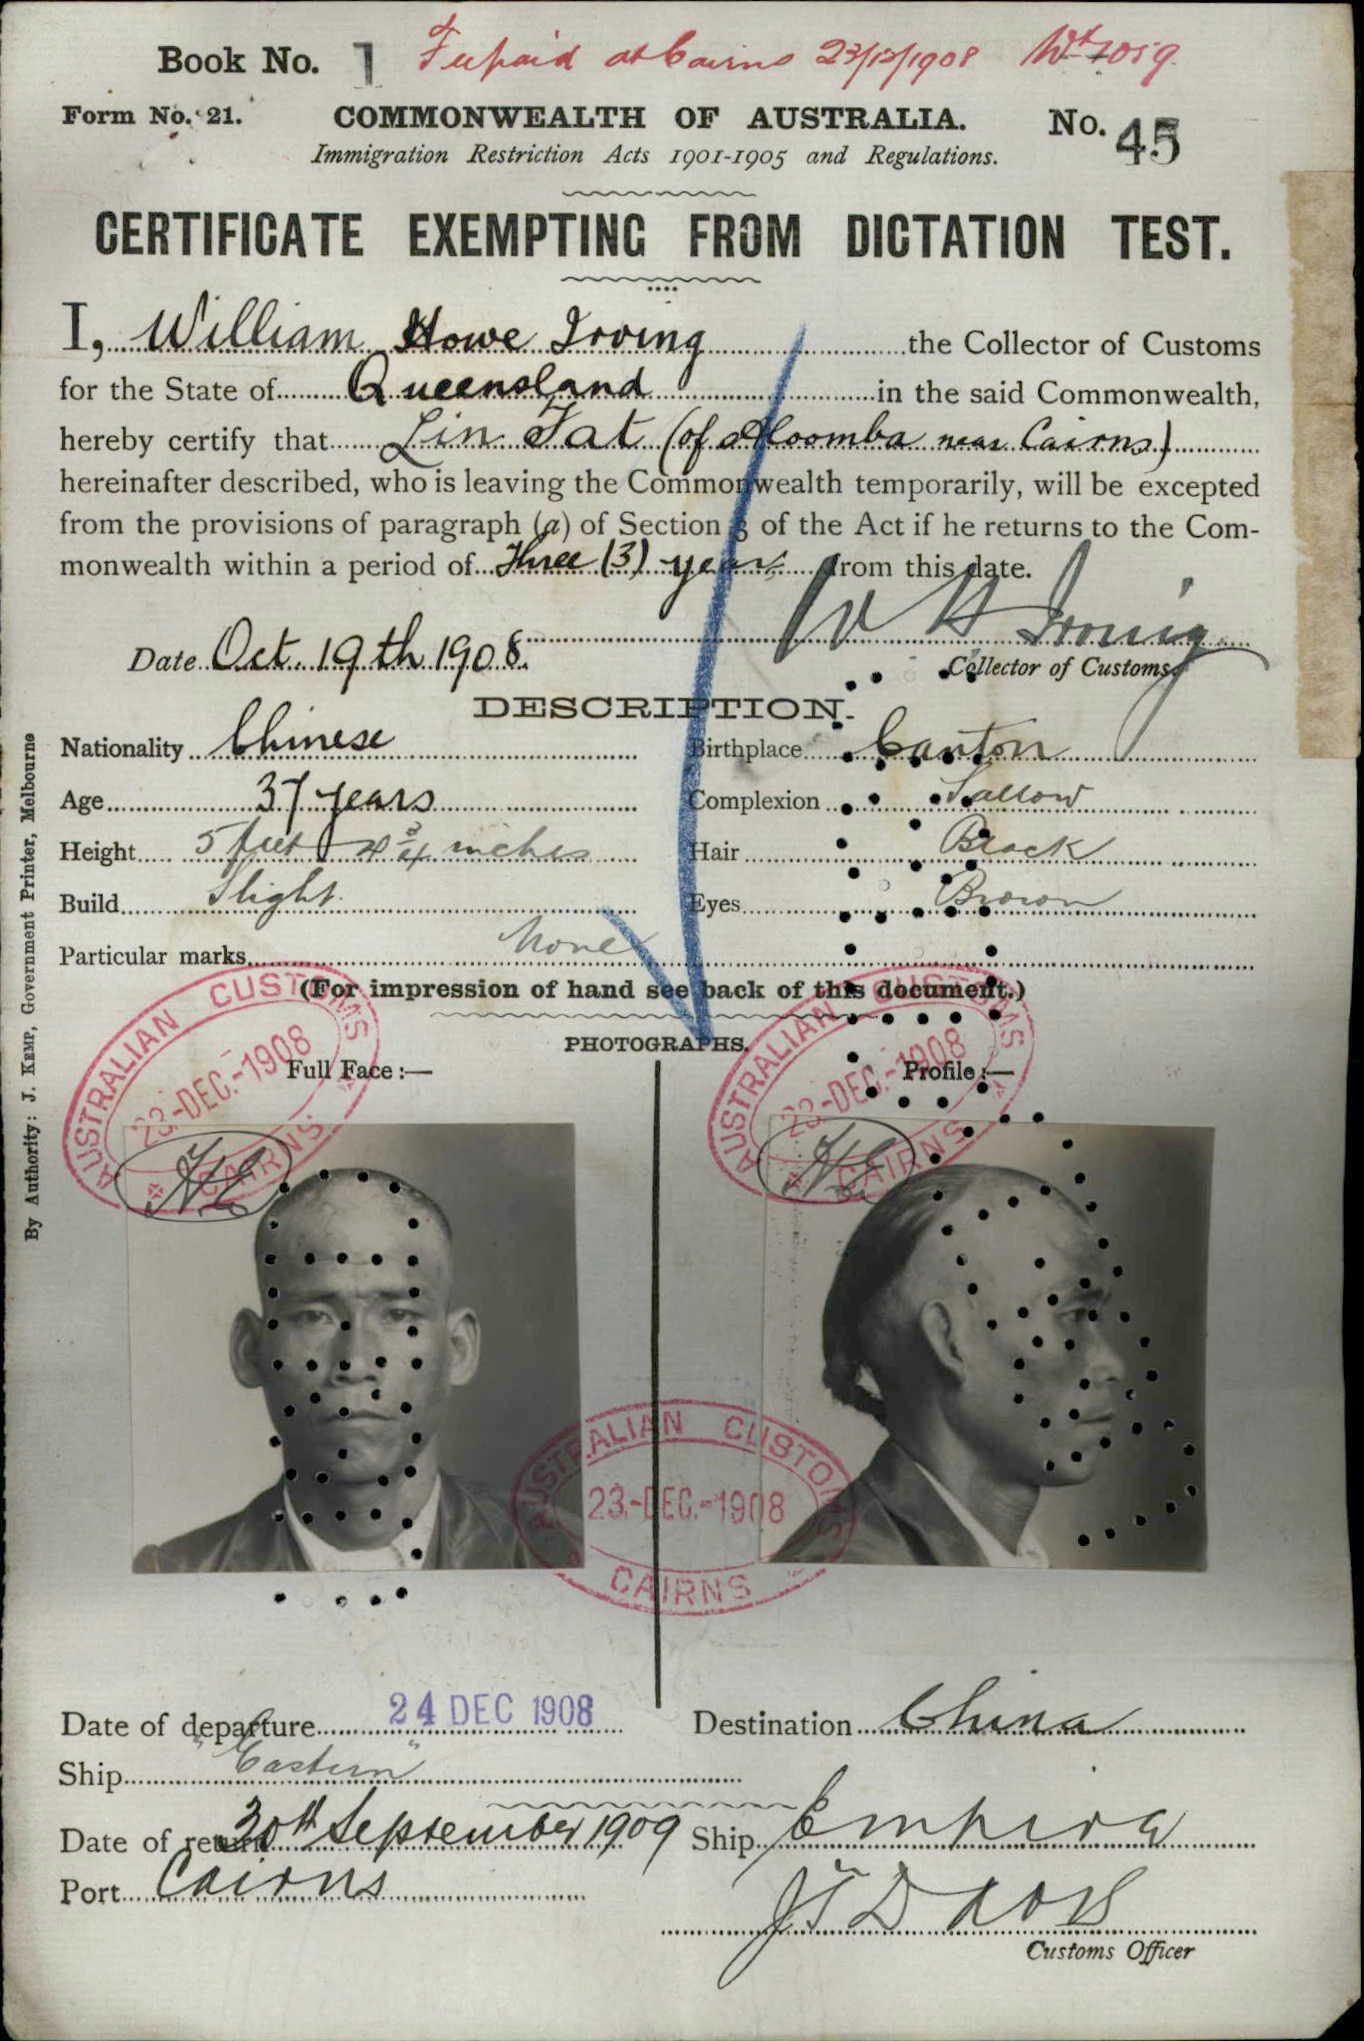 Book No. 1 Fee paid at Cairns 23/12/1908
Form No. 21. COMMONWEALTH OF AUSTRALIA. No. 45
Immigration Restriction Acts 1901-1905 and Regulations.
CERTIFICATE EXEMPTING FROM DICTATION TEST.
I, William Howe Irving the Collector of Customs
for the State of Queensland in the said Commonwealth,
hereby certify that Lin Fat (of Aloomba near Cairns)
hereinafter described, who is leaving the Commonwealth temporarily, will be excepted
from the provisions of paragraph (a) of Section 3 of the Act if he returns to the Com-
monwealth within a period of Three (3) years from this date.
W H Irving
Date Oct. 19th 1908.
Collector of Customs
DESCRIPTION.
Nationality Chinese Birthplace Canton
Age 37 years Complexion Sallow
Height 5 feet 4 3/4 inches Hair Black
Build Slight. Eyes Brown
Particular marks None
(For impression of hand see back of this document.)
PHOTOGRAPHS.
Full Face :— Profile :—
AUSTRALIAN CUSTOMS
23.-DEC.-1908
CAIRNS
AUSTRALIAN CUSTOMS
23.-DEC.-1908
CAIRNS
AUSTRALIAN CUSTOMS
23.-DEC.-1908
CAIRNS
Date of departure 24 DEC 1908 Destination China
Ship "Eastern"
Date of return 30th September 1909 Ship Empire
Port Cairns
Customs Officer
By Authority: J. KEMP, Government Printer, Melbourne